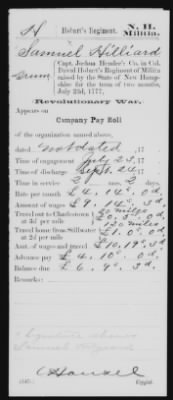 H Hobart's Regiment. N. H. Militia.
Samuel Hilliard
Capt. Joshua Hendee's Co. in Col.
David Hobart's Regiment of Militia
raised by the State of New Hampshire
for the term of two months,
July 23d, 1777.
Revolutionary War.
Appears on
Company Pay Roll
of the organization named above,
dated not dated, 17
Time of engagement July 23, 17
Time of discharge Sept. 24, 17
Time in service 2 mos. 2 days.
Rate per month £ 4. 14s. 0d.
Amount of wages £ 9. 14s. 3d.
Travel out to Charlestown 20 miles
at 3d per mile £ 0. 5s. 0d.
Travel home from Stillwater 120 miles
at 2d per mile £ 1. 0s. 0d.
Amt. of wages and travel £ 10. 19s. 3d.
Advance pay £ 4. 10s. 0d.
Balance due £ 6. 9s. 3d.
Remarks:
Samuel
Copyist.